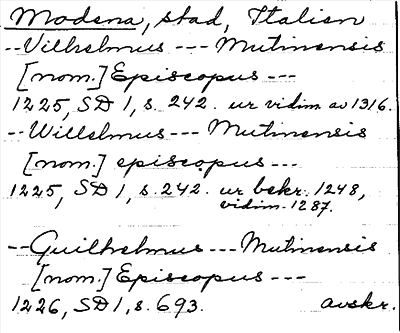 Modena, stad, Italien
--Vilhelmus --- Mutinensis
[nom.] Episcopus ---
1225, SD 1, s. 242. ur vidim av 1316.
--Willelmus --- Mutinensis
[nom.] episcopus ---
1225, SD 1, s. 242. ur bekr. 1248,
vidim. 1287.
--Guilhelmus --- Mutinensis
[nom.] Episcopus ---
1226, SD 1, s. 693. avskr.